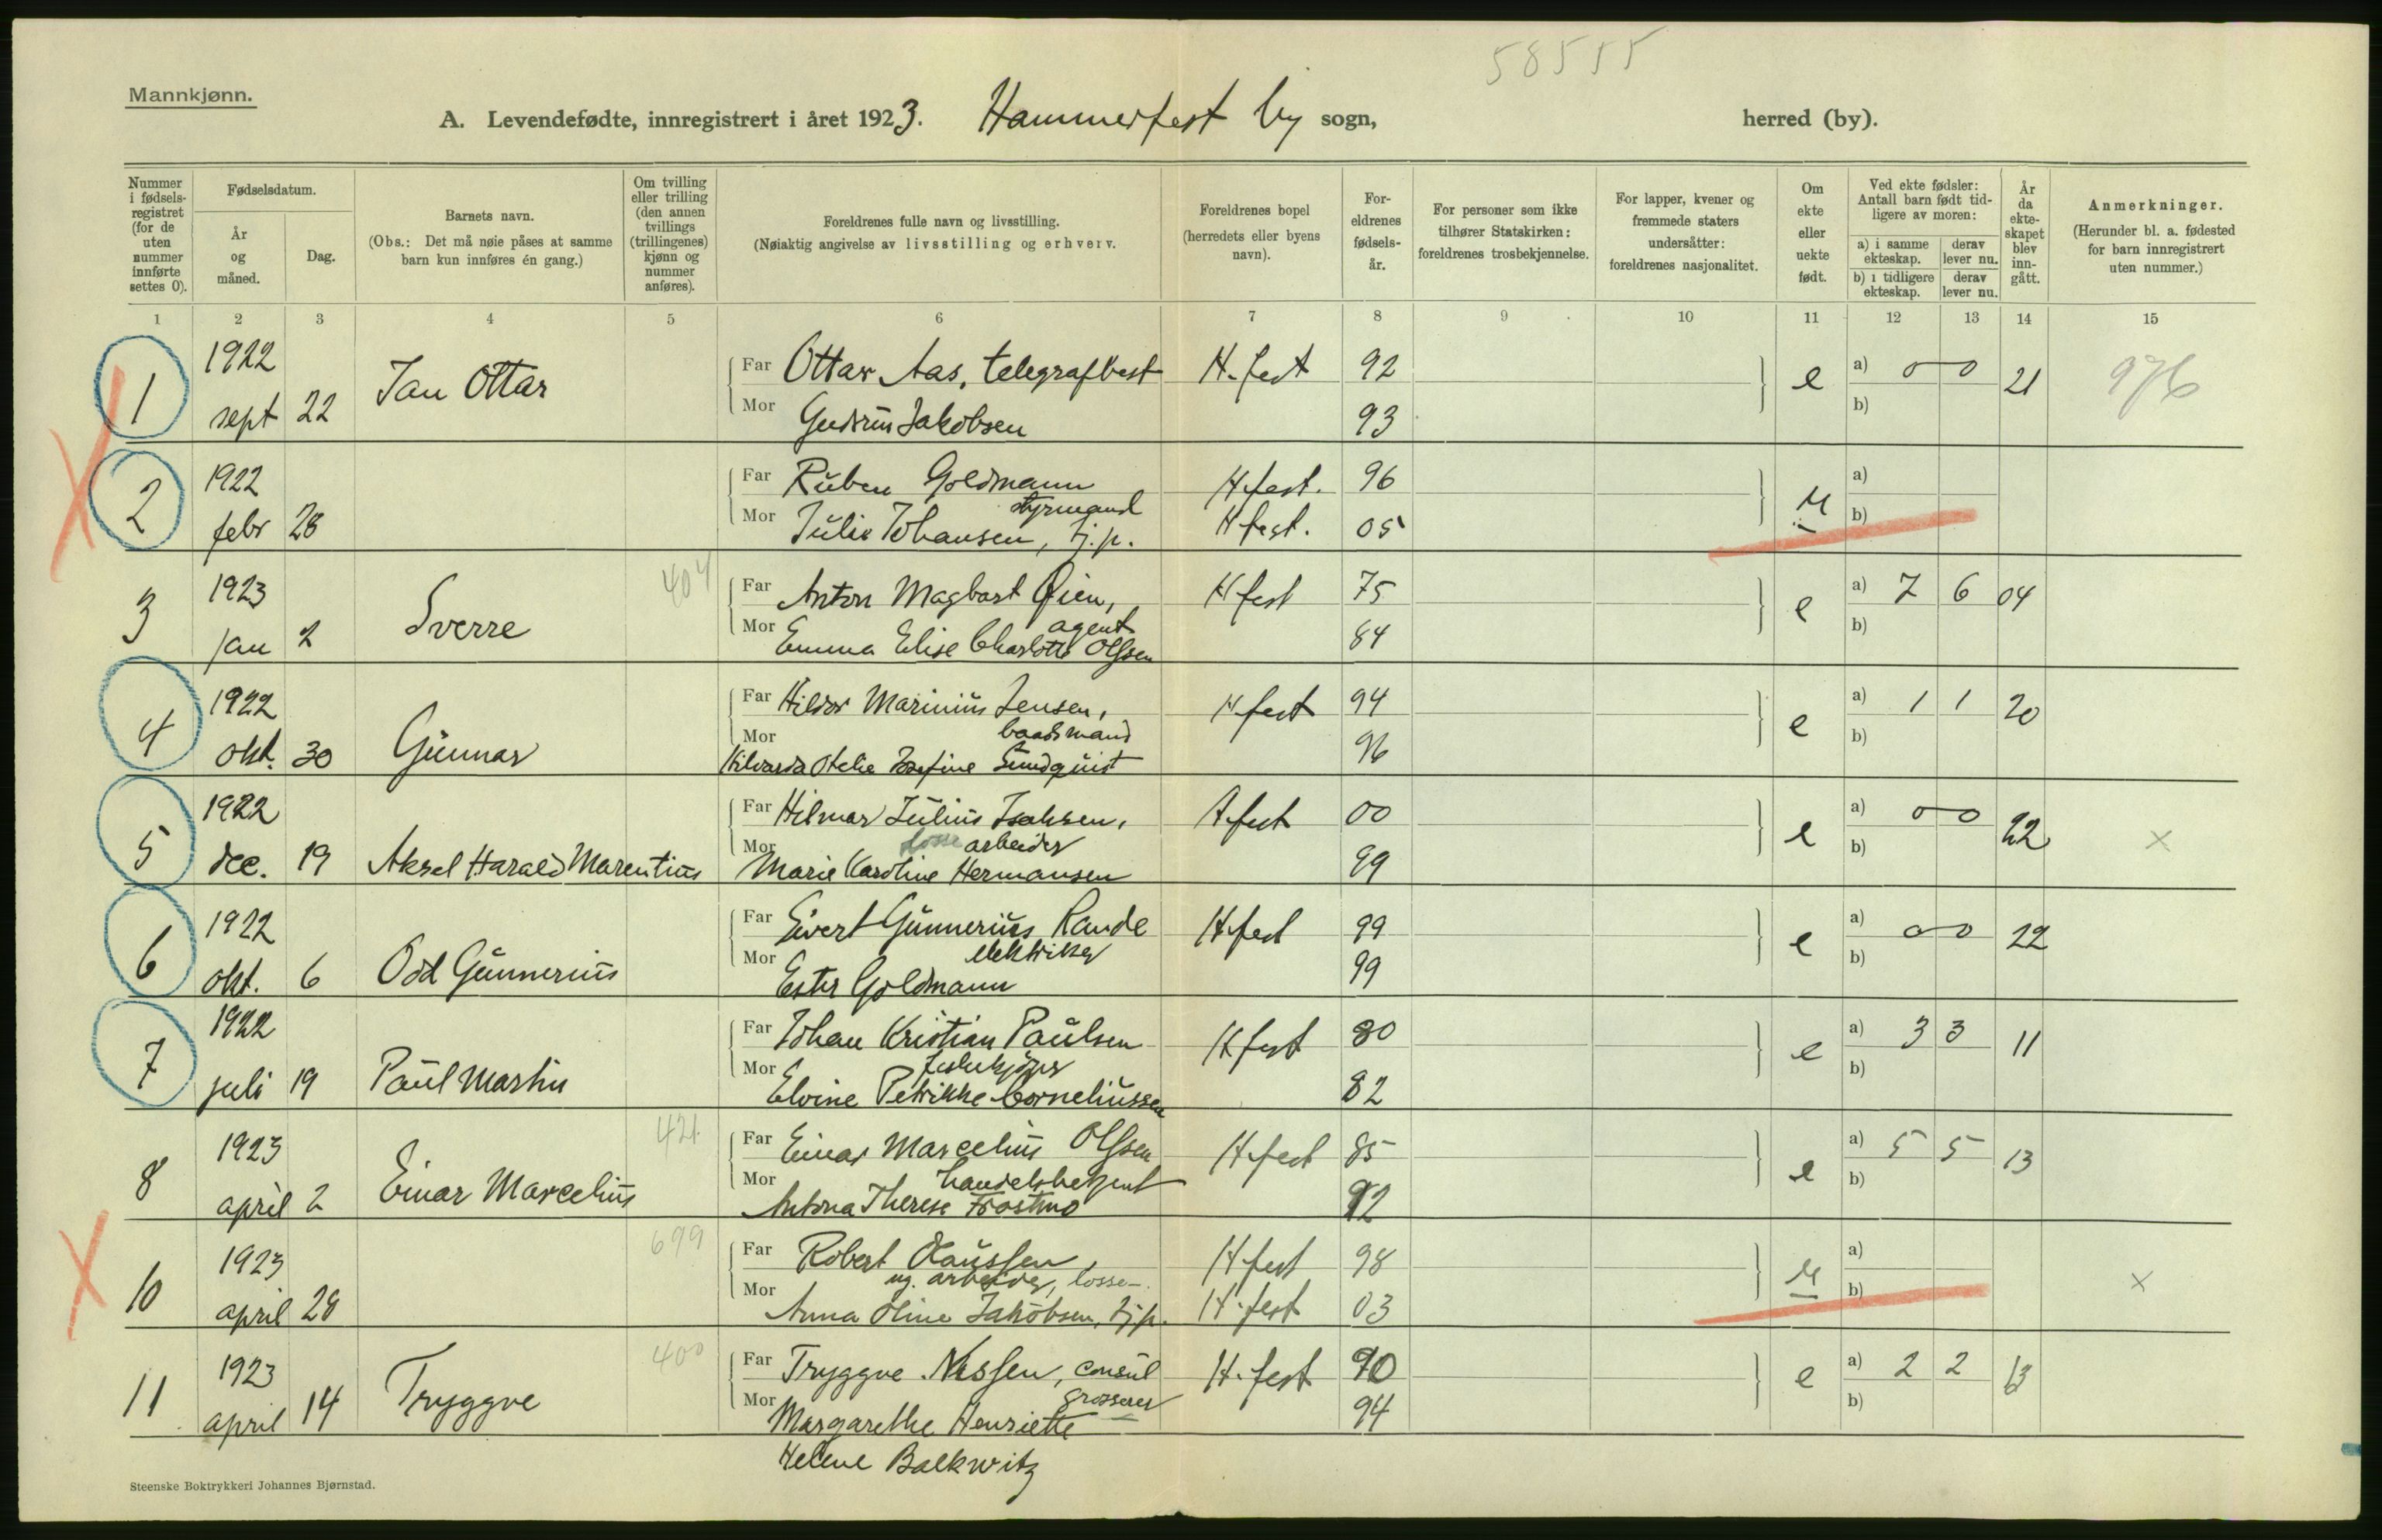 58555
Mannkjønn.
A. Levendefødte, innregistrert i året 1923. Hammerfest by sogn, herred (by).
Nummer i fødselsregistret (for de uten nummer innførte settes 0).
Fødselsdatum.
År og måned.
Dag.
Barnets navn.
(Obs.: Det må nøie påses at samme barn kun innføres én gang.)
Om tvilling eller trilling (den annen tvillings (trillingenes) kjønn og nummer anføres).
Foreldrenes fulle navn og livsstilling.
(Nøiaktig angivelse av livsstilling og erhverv.
Foreldrenes bopel (herredets eller byens navn).
Foreldrenes fødselsår.
For personer som ikke tilhører Statskirken: foreldrenes trosbekjennelse.
For lapper, kvener og fremmede staters undersåtter: foreldrenes nasjonalitet.
Om ekte eller uekte født.
Ved ekte fødsler: Antall barn født tidligere av moren:
a) i samme ekteskap.
derav lever nu.
b) i tidligere ekteskap.
derav lever nu.
År da ekteskapet blev inngått.
Anmerkninger.
(Herunder bl. a. fødested for barn innregistrert uten nummer.)
1 2 3 4 5 6 7 8 9 10 11 12 13 14 15
1 1922 sept 22 Jan Ottar Far Ottar Aas, telegrafbest H.fest 92 e a) 0 0 21 976
Mor Gudrun Jakobsen 93 b)
2 1922 febr 28 Far Ruben Goldmann H.fest. 96 u a)
styrmand
Mor Julie Johansen, tj.p. H.fest. 05 b)
3 1923 jan 2 Sverre 404 Far Anton Magbart Øien, H.fest 75 e a) 7 6 04
agent
Mor Emma Elise Charlotte Olssen 84 b)
4 1922 okt. 30 Gunnar Far Hildor Marinius Jensen, H.fest 94 e a) 1 1 20
baadsmand
Mor Hilvarda Otelie Josefine Sundquist 96 b)
5 1922 dec. 19 Aksel Harald Marentius Far Hilmar Julius Isaksen, H.fest 00 e a) 0 0 22 x
losse arbeider
Mor Marie Karoline Hermansen 99 b)
6 1922 okt. 6 Odd Gunnerius Far Eivert Gunnerius Rande H.fest 99 e a) 0 0 22
elektriker
Mor Ester Goldmann 99 b)
7 1922 juli 19 Paul Martin Far Johan Kristian Paulsen H.fest 80 e a) 3 3 11
Mor Elvine Petrikke Corneliussen 82 b)
8 1923 april 2 Einar Marcelius 421. Far Einar Marcelius Olssen H.fest 85 e a) 5 5 13
handelsbetjent
Mor Antona Therese Frostmo 92 b)
10 1923 april 28 699 Far Robert Claussen, H.fest 98 u a) x
ug. arbeider, losse-
Mor Anna Oline Jakobsen, tj.p. H.fest 03 b)
11 1923 april 14 Tryggve 400 Far Tryggve Nissen, consul H.fest 90 e a) 2 2 13
grosserer
Mor Margarethe Henriette 94 b)
Helene Balkwitz
Steenske Boktrykkeri Johannes Bjørnstad.